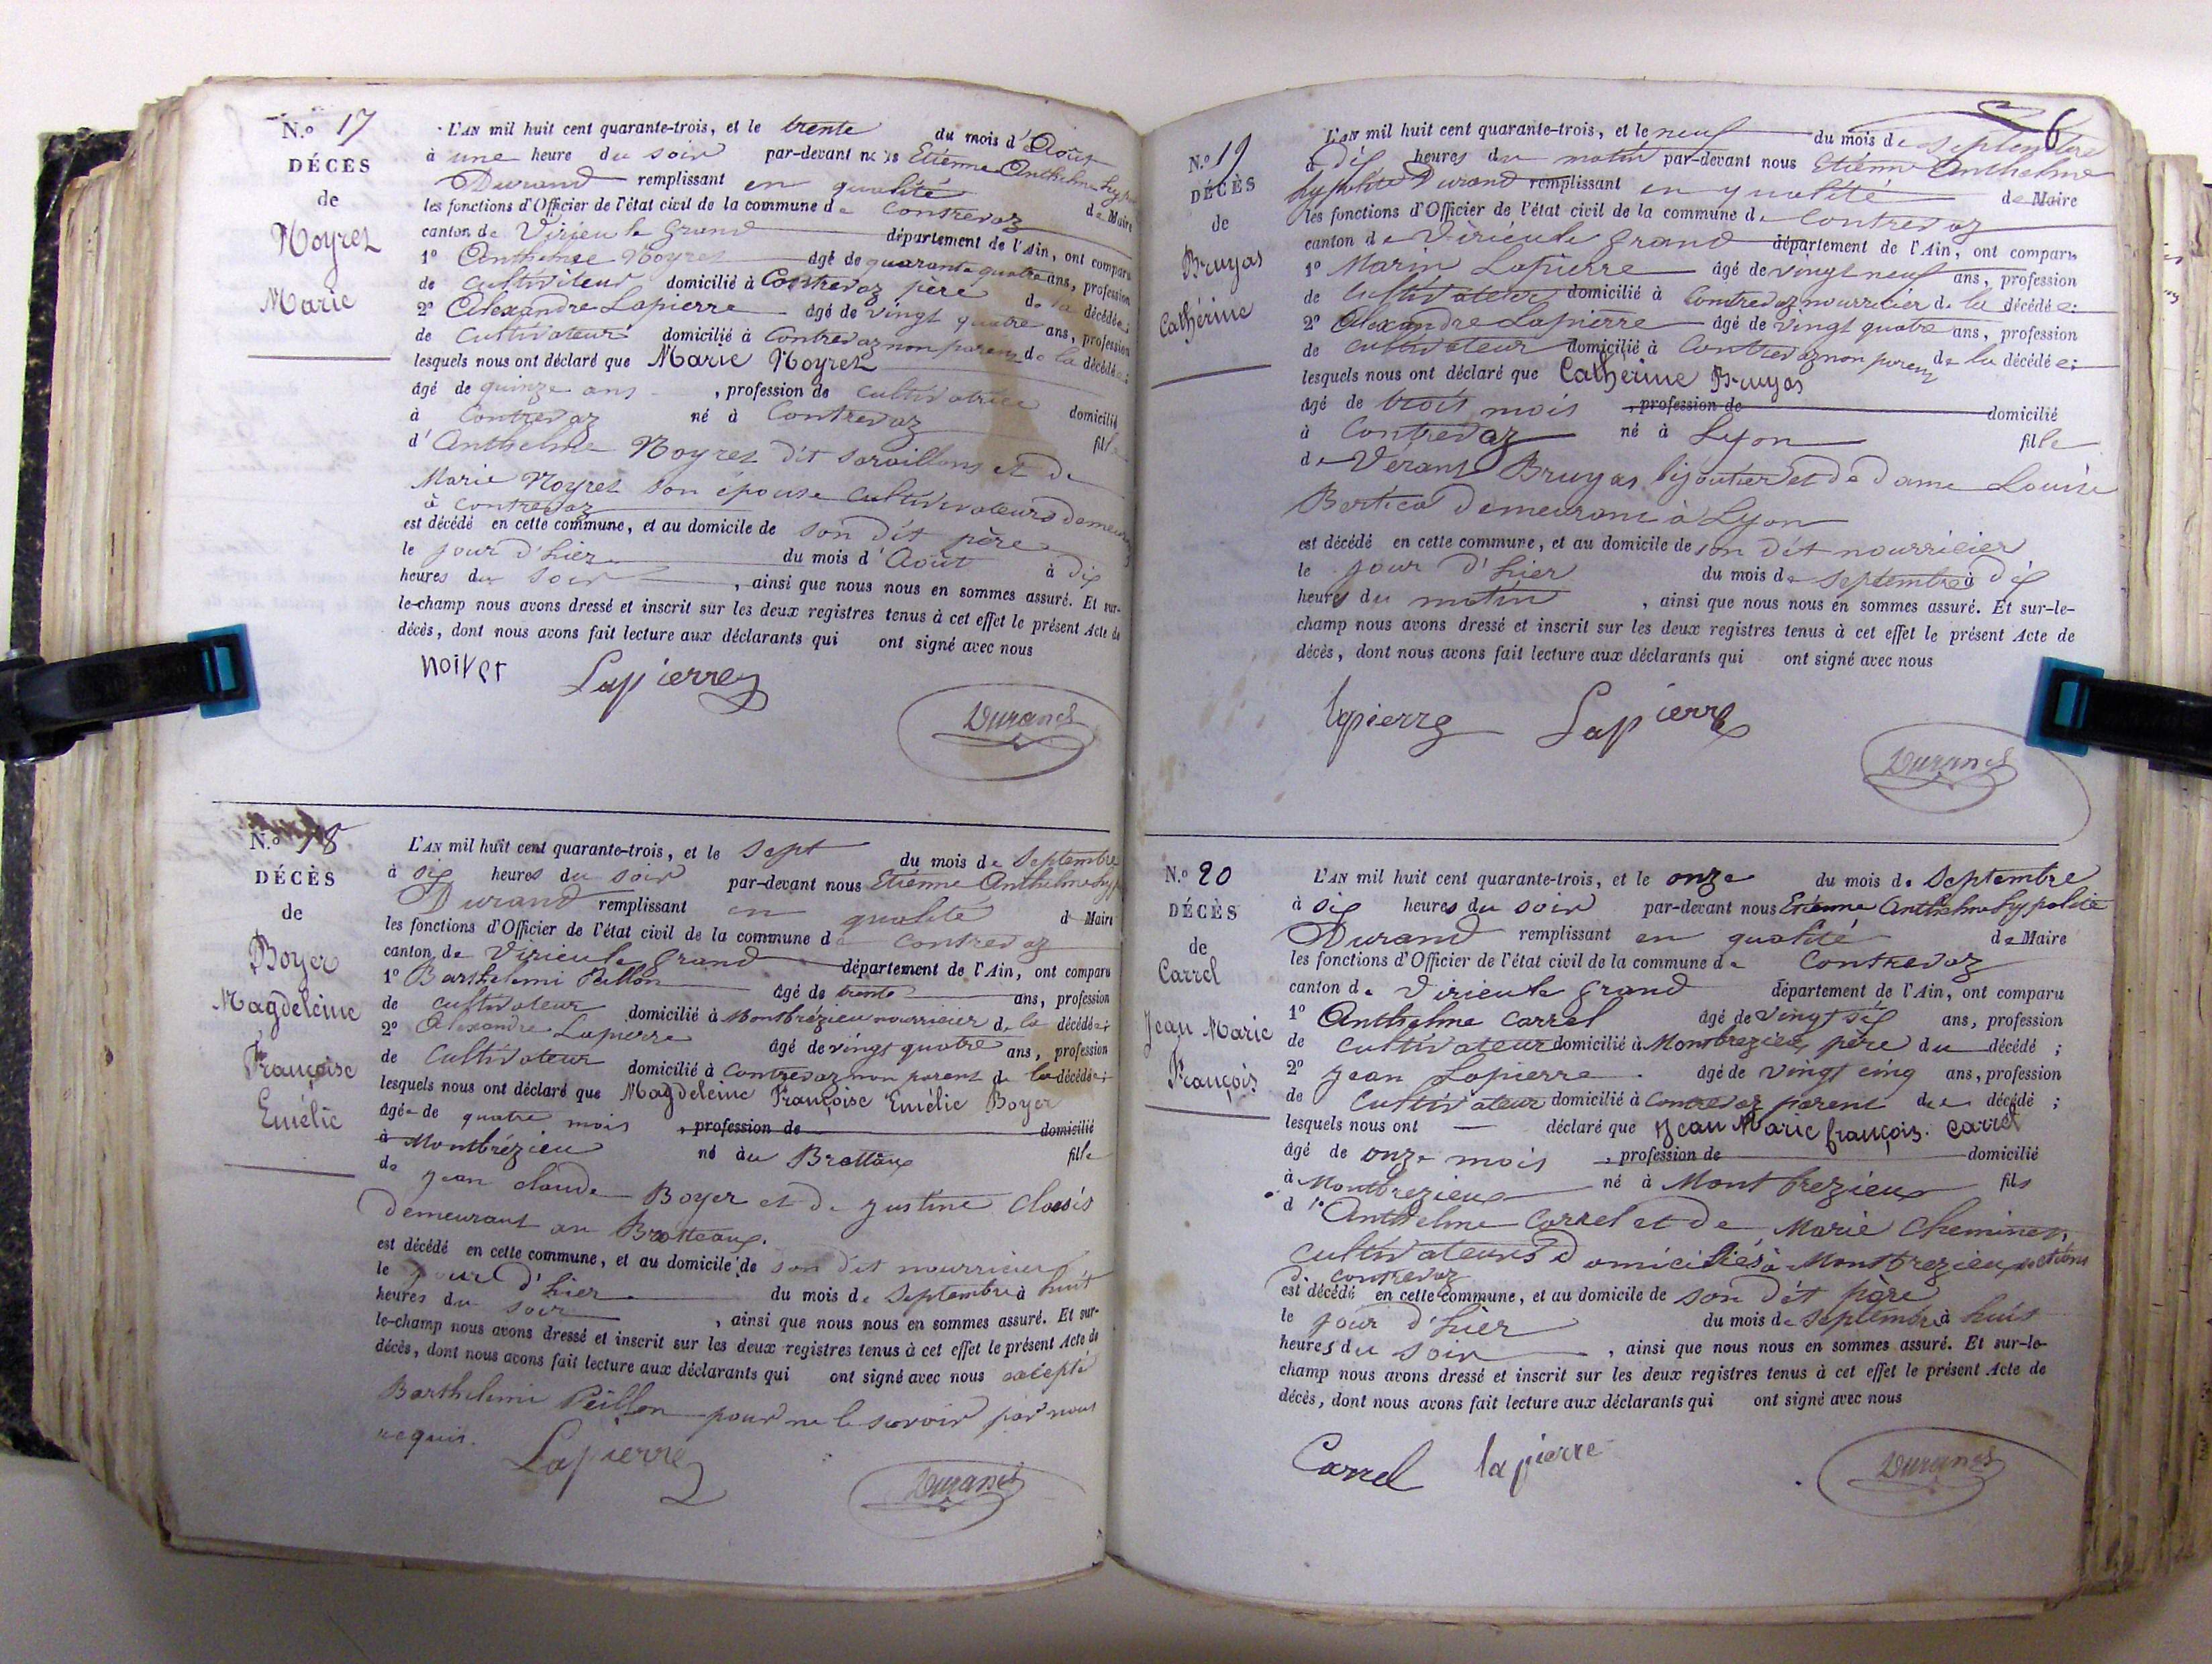 N.º 17
DÉCÈS
de
Noyret
Marie
L'AN mil huit cent quarante-trois, et le trente du mois d'Août
à une heure du soir par-devant nous Etienne Anthelme hyp
Durand remplissant en qualité de Maire
les fonctions d'Officier de l'état civil de la commune de Contrevoz
canton de Virieu le grand département de l'Ain, ont comparu
1º Anthelme Noyret âgé de quarante quatre ans, profession
de cultivateur domicilié à Contrevoz père de la décédée;
2º Alexandre Lapierre âgé de vingt quatre ans, profession
de cultivateur domicilié à Contrevoz non parent de la décédée;
lesquels nous ont déclaré que Marie Noyret
âgé de quinze ans, profession de cultivatrice domicilié
à Contrevoz né à Contrevoz fille
d'Anthelme Noyret dit et de
Marie Noyret son épouse cultivateurs
à Contrevoz
est décédé en cette commune, et au domicile de son dit père
le jour d'hier du mois d'Août à dix
heures du soir, ainsi que nous nous en sommes assuré. Et sur-
le-champ nous avons dressé et inscrit sur les deux registres tenus à cet effet le présent Acte de
décès, dont nous avons fait lecture aux déclarants qui ont signé avec nous
noiret Lapierre
Durand
N.º 18
DÉCÈS
de
Boyer
Magdeleine
Françoise
Emélie
L'AN mil huit cent quarante-trois, et le sept du mois de Septembre
à six heures du soir par-devant nous Etienne Anthelme hyp
Durand remplissant en qualité de Maire
les fonctions d'Officier de l'état civil de la commune de Contrevoz
canton de Virieu le grand département de l'Ain, ont comparu
1º Barthelemi Peillon âgé de trente ans, profession
de cultivateur domicilié à Montbrézieu nourricier de la décédée;
2º Alexandre Lapierre âgé de vingt quatre ans, profession
de cultivateur domicilié à Contrevoz non parent de la décédée;
lesquels nous ont déclaré que Magdeleine Françoise Emélie Boyer
âgée de quatre mois, profession de domicilié
à Montbrézieu né au Brotteaux fille
de Jean claude Boyer et de Justine
demeurant au Brotteaux.
est décédé en cette commune, et au domicile de son dit nourricier
le jour d'hier du mois de Septembre à huit
heures du soir, ainsi que nous nous en sommes assuré. Et sur-
le-champ nous avons dressé et inscrit sur les deux registres tenus à cet effet le présent Acte de
décès, dont nous avons fait lecture aux déclarants qui ont signé avec nous excepté
Barthelemi Peillon pour ne le savoir par nous
requis. Lapierre
Durand
6
N.º 19
DÉCÈS
de
Bruyas
Cathérine
L'AN mil huit cent quarante-trois, et le neuf du mois de Septembre
à dix heures du matin par-devant nous Etienne Anthelme
hypolite Durand remplissant en qualité de Maire
les fonctions d'Officier de l'état civil de la commune de Contrevoz
canton de Virieu le grand département de l'Ain, ont comparu
1º Marin Lapierre âgé de vingt neuf ans, profession
de cultivateur domicilié à Contrevoz nourricier de la décédée;
2º Alexandre Lapierre âgé de vingt quatre ans, profession
de cultivateur domicilié à Contrevoz non parent de la décédée;
lesquels nous ont déclaré que Cathérine Bruyas
âgé de trois mois, profession de domicilié
à Contrevoz né à Lyon fille
de Vérant Bruyas bijoutier et de dame Louise
demeurant à Lyon
est décédé en cette commune, et au domicile de son dit nourricier
le jour d'hier du mois de Septembre à dix
heures du matin, ainsi que nous nous en sommes assuré. Et sur-le-
champ nous avons dressé et inscrit sur les deux registres tenus à cet effet le présent Acte de
décès, dont nous avons fait lecture aux déclarants qui ont signé avec nous
lapierre Lapierre
Durand
N.º 20
DÉCÈS
de
Carrel
Jean Marie
François
L'AN mil huit cent quarante-trois, et le onze du mois de Septembre
à six heures du soir par-devant nous Etienne Anthelme hypolite
Durand remplissant en qualité de Maire
les fonctions d'Officier de l'état civil de la commune de Contrevoz
canton de Virieu le grand département de l'Ain, ont comparu
1º Anthelme Carrel âgé de vingt six ans, profession
de cultivateur domicilié à Montbrezieu père du décédé;
2º Jean Lapierre âgé de vingt cinq ans, profession
de cultivateur domicilié à Contrevoz parent du décédé;
lesquels nous ont déclaré que Jean Marie françois Carrel
âgé de onze mois, profession de domicilié
à Montbrezieux né à Montbrezieux fils
d'Anthelme Carrel et de Marie Cheminet,
cultivateurs domiciliés à Montbrezieu
de contrevoz
est décédé en cette commune, et au domicile de son dit père
le jour d'hier du mois de Septembre à huit
heures du soir, ainsi que nous nous en sommes assuré. Et sur-le-
champ nous avons dressé et inscrit sur les deux registres tenus à cet effet le présent Acte de
décès, dont nous avons fait lecture aux déclarants qui ont signé avec nous
Carrel lapierre
Durand